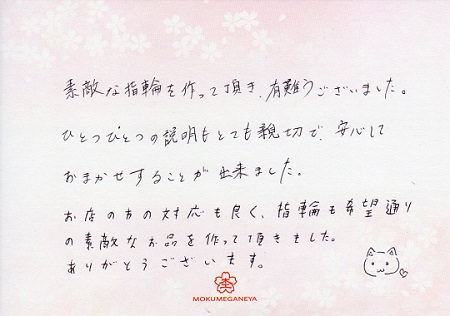 素敵な指輪を作って頂き、有難うございました。
ひとつひとつの説明もとても親切で、安心して
おまかせすることが出来ました。
お店の方の対応も良く、指輪も希望通り
の素敵なお品を作って頂きました。
ありがとうございます。
MOKUMEGANEYA